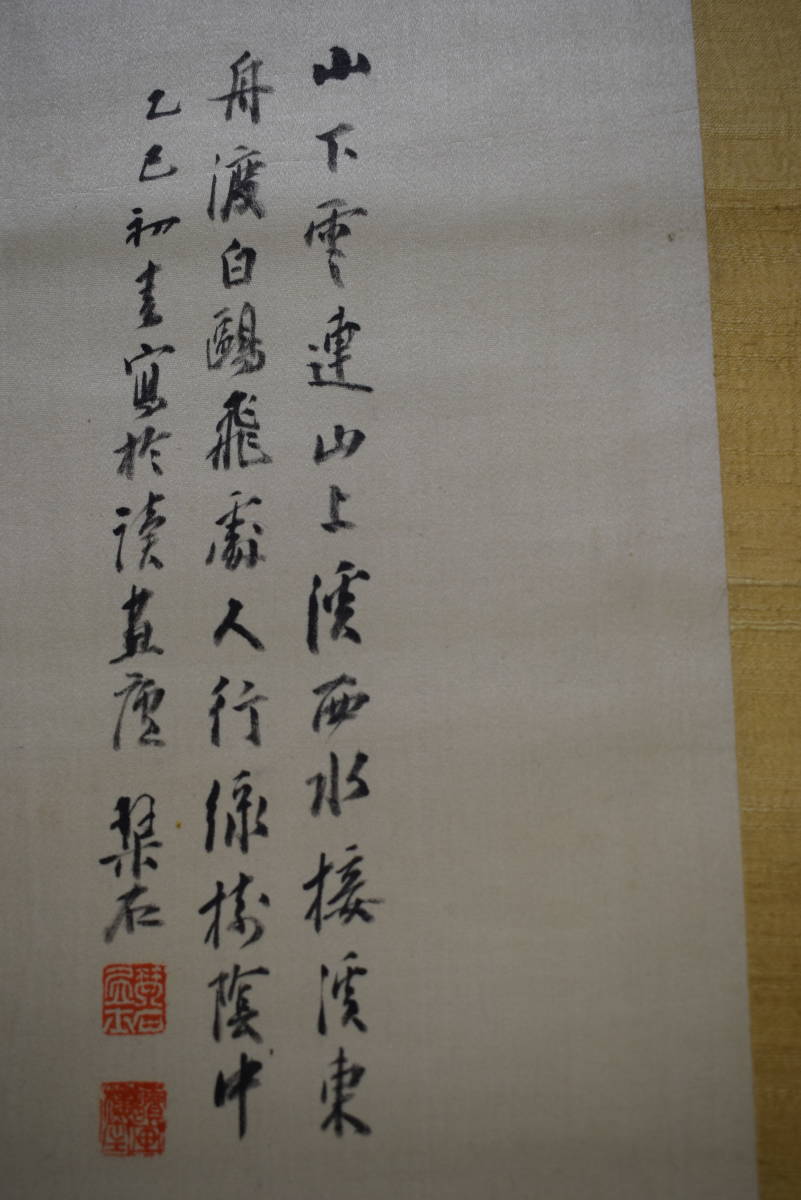 山下雲連山上溪西水接溪東
舟渡白鷗飛處人行綠樹陰中
乙巳初春寫於讀畫廬 琹石